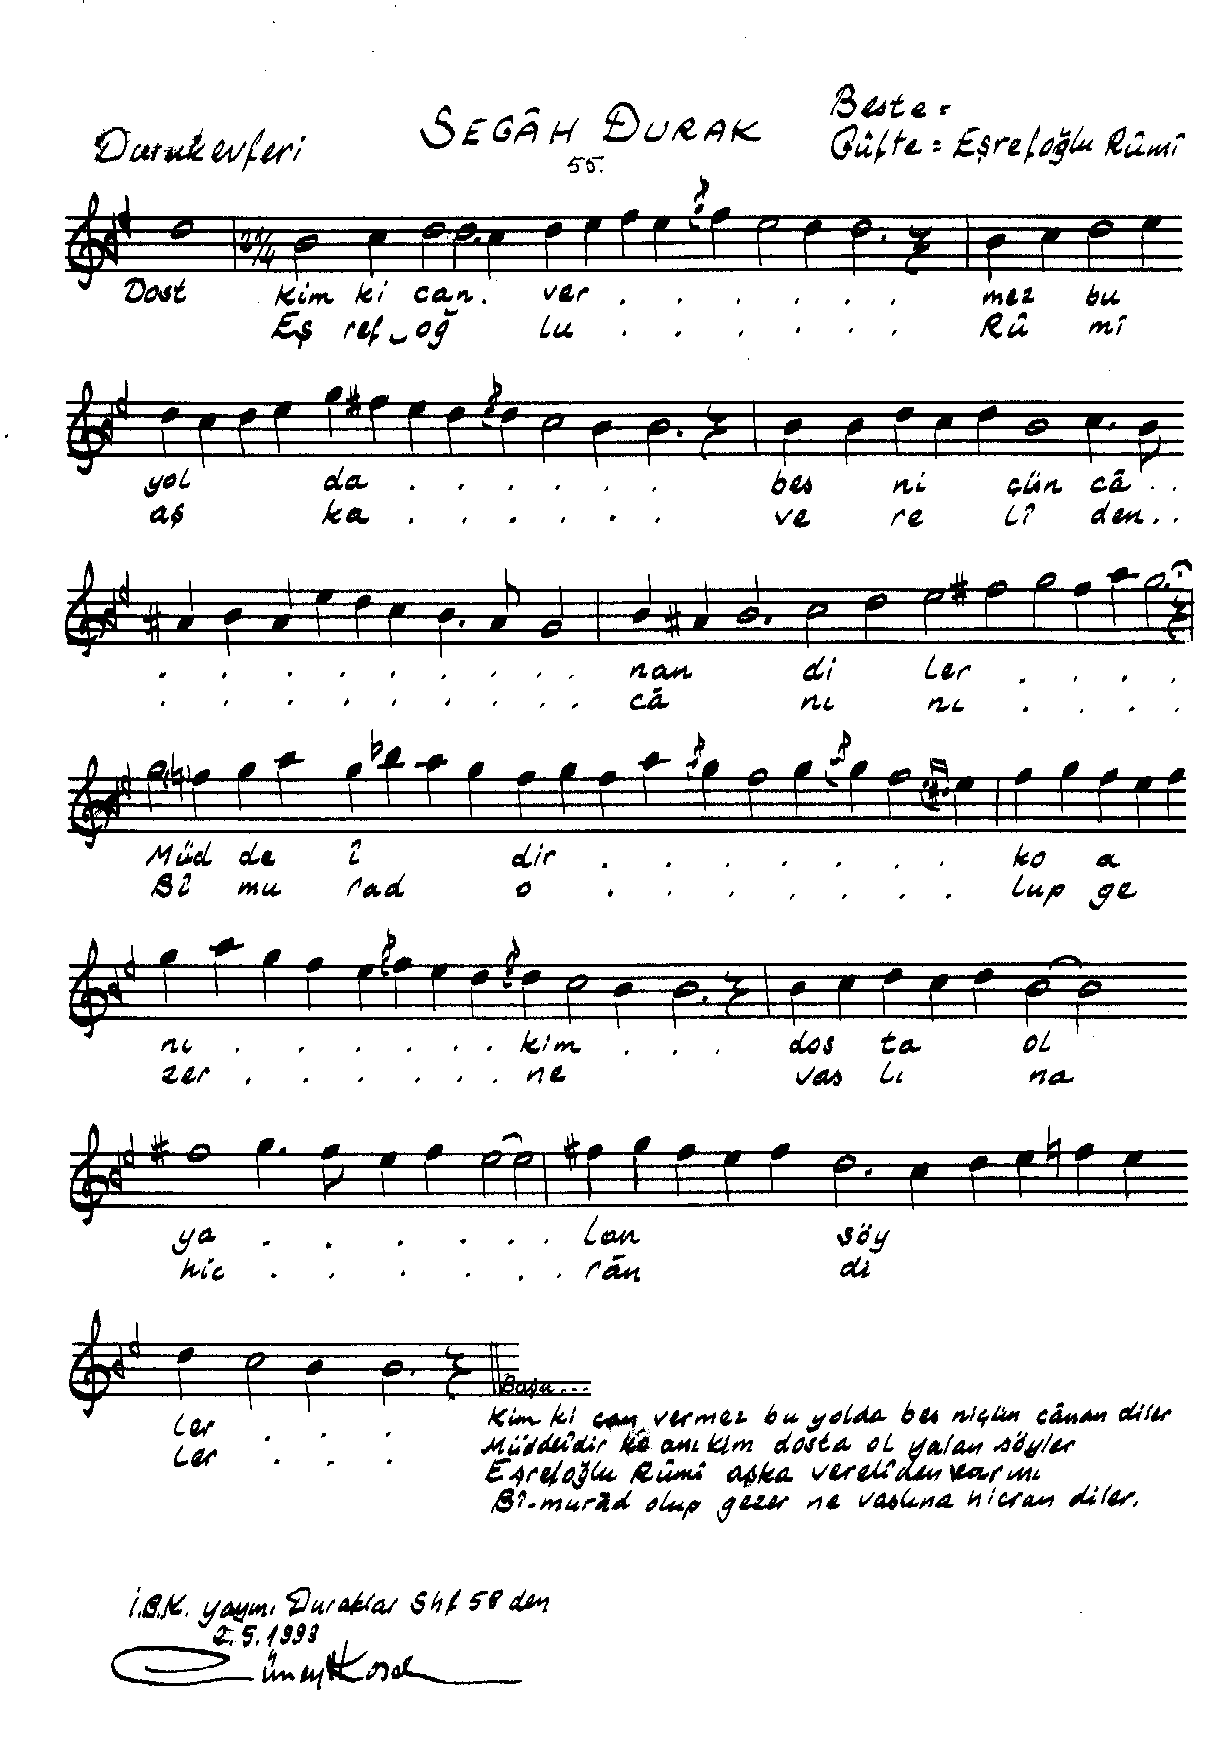 SEGÂH DURAK
Beste =
Durakevferi
Güfte = Eşrefoğlu Rûmî
55.
21/4
Dost kim ki can. ver . . . . . . mez bu
Eş ref oğ lu . . . . . . Rû mî
yol da . . . . . . bes ni çün câ . .
aş ka . . . . . . ve re lî den . .
. . . . . . . . . nan di ler . . . .
. . . . . . . . . câ nı nı . . . .
Müd de î dir . . . . . . . ko a
Bî mu rad o . . . . . . . lup ge
nı . . . . . . kim . . . dos ta ol
zer . . . . . . ne vas lı na
ya . . . . . . lan söy
hic . . . . . . rân di
ler . . .
ler . . .
Başa...
Kim ki can vermez bu yolda bes niçün cânan diler
Müddeîdir ko anı kim dosta ol yalan söyler
Eşrefoğlu Rûmî aşka verelîden varını
Bî-murad olup gezer ne vaslına hicran diler.
İ.B.K. yayını Duraklar Shf 58 den
2.5.1993
Cüneyt Kosal